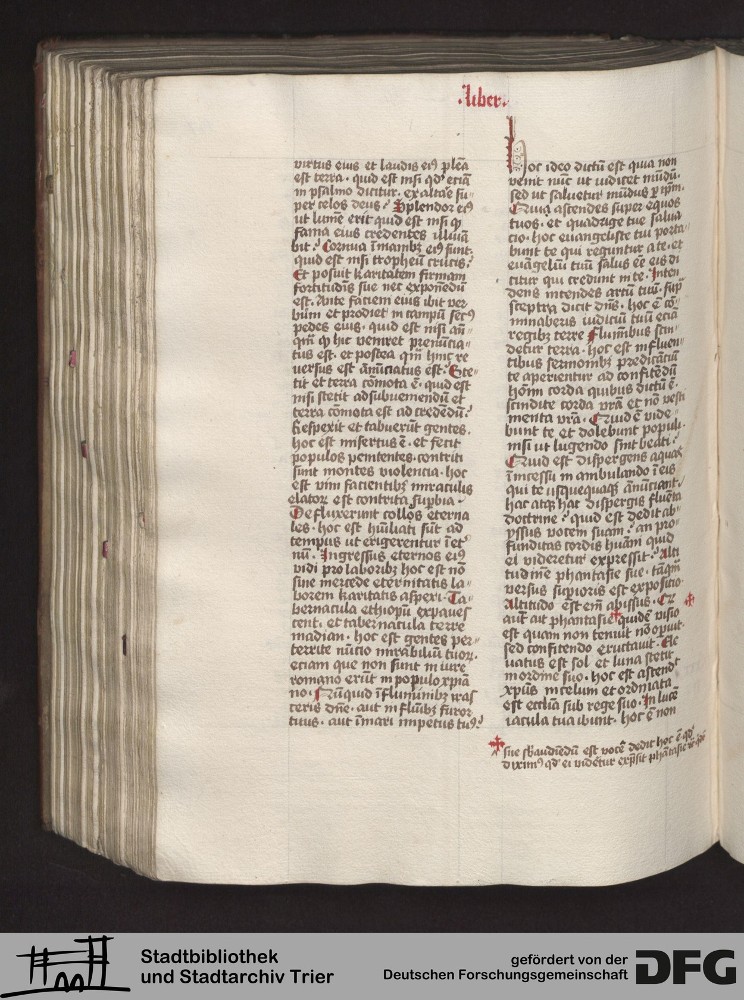 ·liber·
virtus eius et laudis ei9 plēa
est terra · quid est nisi qđ etiā
in psalmo dicitur · exaltare su-
per celos deus? Splendor ei9
ut lumē erit quid est nisi q
fama eius credentes illuīa
bit? Cornua ī manibꝫ ei9 sunt·
quid est nisi tropheū crucis?
Et posuit karitatem firmam
fortitudīs sue nec exponēdū
est. Ante faciem eius ibit ver
bum et prodiet in campū sec9
pedes eius · quid est nisi an-
qm̄ q hic veniret prenūcia-
tus est · et postea qm̄ hinc re
versus est anūciatus est? Ste-
tit et terra cōmota ē · quid est
nisi stetit ad subveniendū et
terra cōmota est ad credēdū?
Respexit et tabuerūt gentes.
hoc est misertus ē · et fecit
populos penitentes · contriti
sunt montes violencia · hoc
est vim facientibꝫ miraculis
elatorꝝ est contrita supbia ·
Defluxerunt colles eterna
les · hoc est hūiliati sūt ad
tempus ut erigerentur ī et
nū · Ingressus eternos ei9
vidi pro laboribꝫ hoc est nō
sine mercede eternitatis la-
borem karitatis aspexi · Ta-
bernacula ethiopū expaves
cent · et tabernacula terre
madian · hoc est gentes per-
territe nūcio mirabiliū tuorꝝ·
eciam que non sunt in iure
romano erūt in populo xpiā
no · Nūquid ī fluminibꝫ iras
ceris dn̄e · aut in flūibꝫ furor
tuus · aut ī mari impetus tu9?
Hoc ideo dictū est quia non
venit nūc ut iudicet mūdū·
sed ut salvetur mūdus p ipm̄·
Quia ascendes super equos
tuos · et quadrige tue salva-
cio · hoc euangeliste tui porta-
bunt te qui reguntur a te · et
euāgeliū tuū salus ēē eis di
citur qui credunt in te · Inten
dens intendes artū tuū · sup
sceptra dicit dn̄s · hoc ē cō-
minaberis iudiciū tuū eciā
regibꝫ terre Fluminibus scin-
detur terra · hoc est influen-
tibus sermonibꝫ predicanciū
te aperientur ad confitēdū
hōim corda quibus dictū ē·
scindite corda vrā et nō vesti
menta vrā · Quid ē vide-
bunt te et dolebunt populi·
nisi ut lugendo sint beati?
Quid est dispergens aquas
ī incessu nisi ambulando ī eis
qui te usquequaqꝫ anūciant·
hac atqꝫ hac dispergis fluēta
doctrine? quid est dedit ab-
yssus vocem suam? an pro-
funditas cordis hūani quid
ei videretur expressit · Alti
tudine phantasie sue · tāqm̄
versus supioris est expositio·
Altitudo est em̄ abissus · Cꝫ
aut̄ ait phantasie quidē visio
est quam non tenuit nō opuit·
sed confitendo eructavit · Ele
vatus est sol et luna stetit
in ordine suo · hoc est ascendt
xpūs in celum et ordinata
est eccl̄ia sub rege suo · In lucē
iacula tua ibunt · hoc ē non
sue sbaudiēdū est vocē dedit hoc ē qđ
diximꝰ qđ ei vidētur exp̄ssit phantasie
Stadtbibliothek
und Stadtarchiv Trier
gefördert von der
Deutschen Forschungsgemeinschaft
DFG